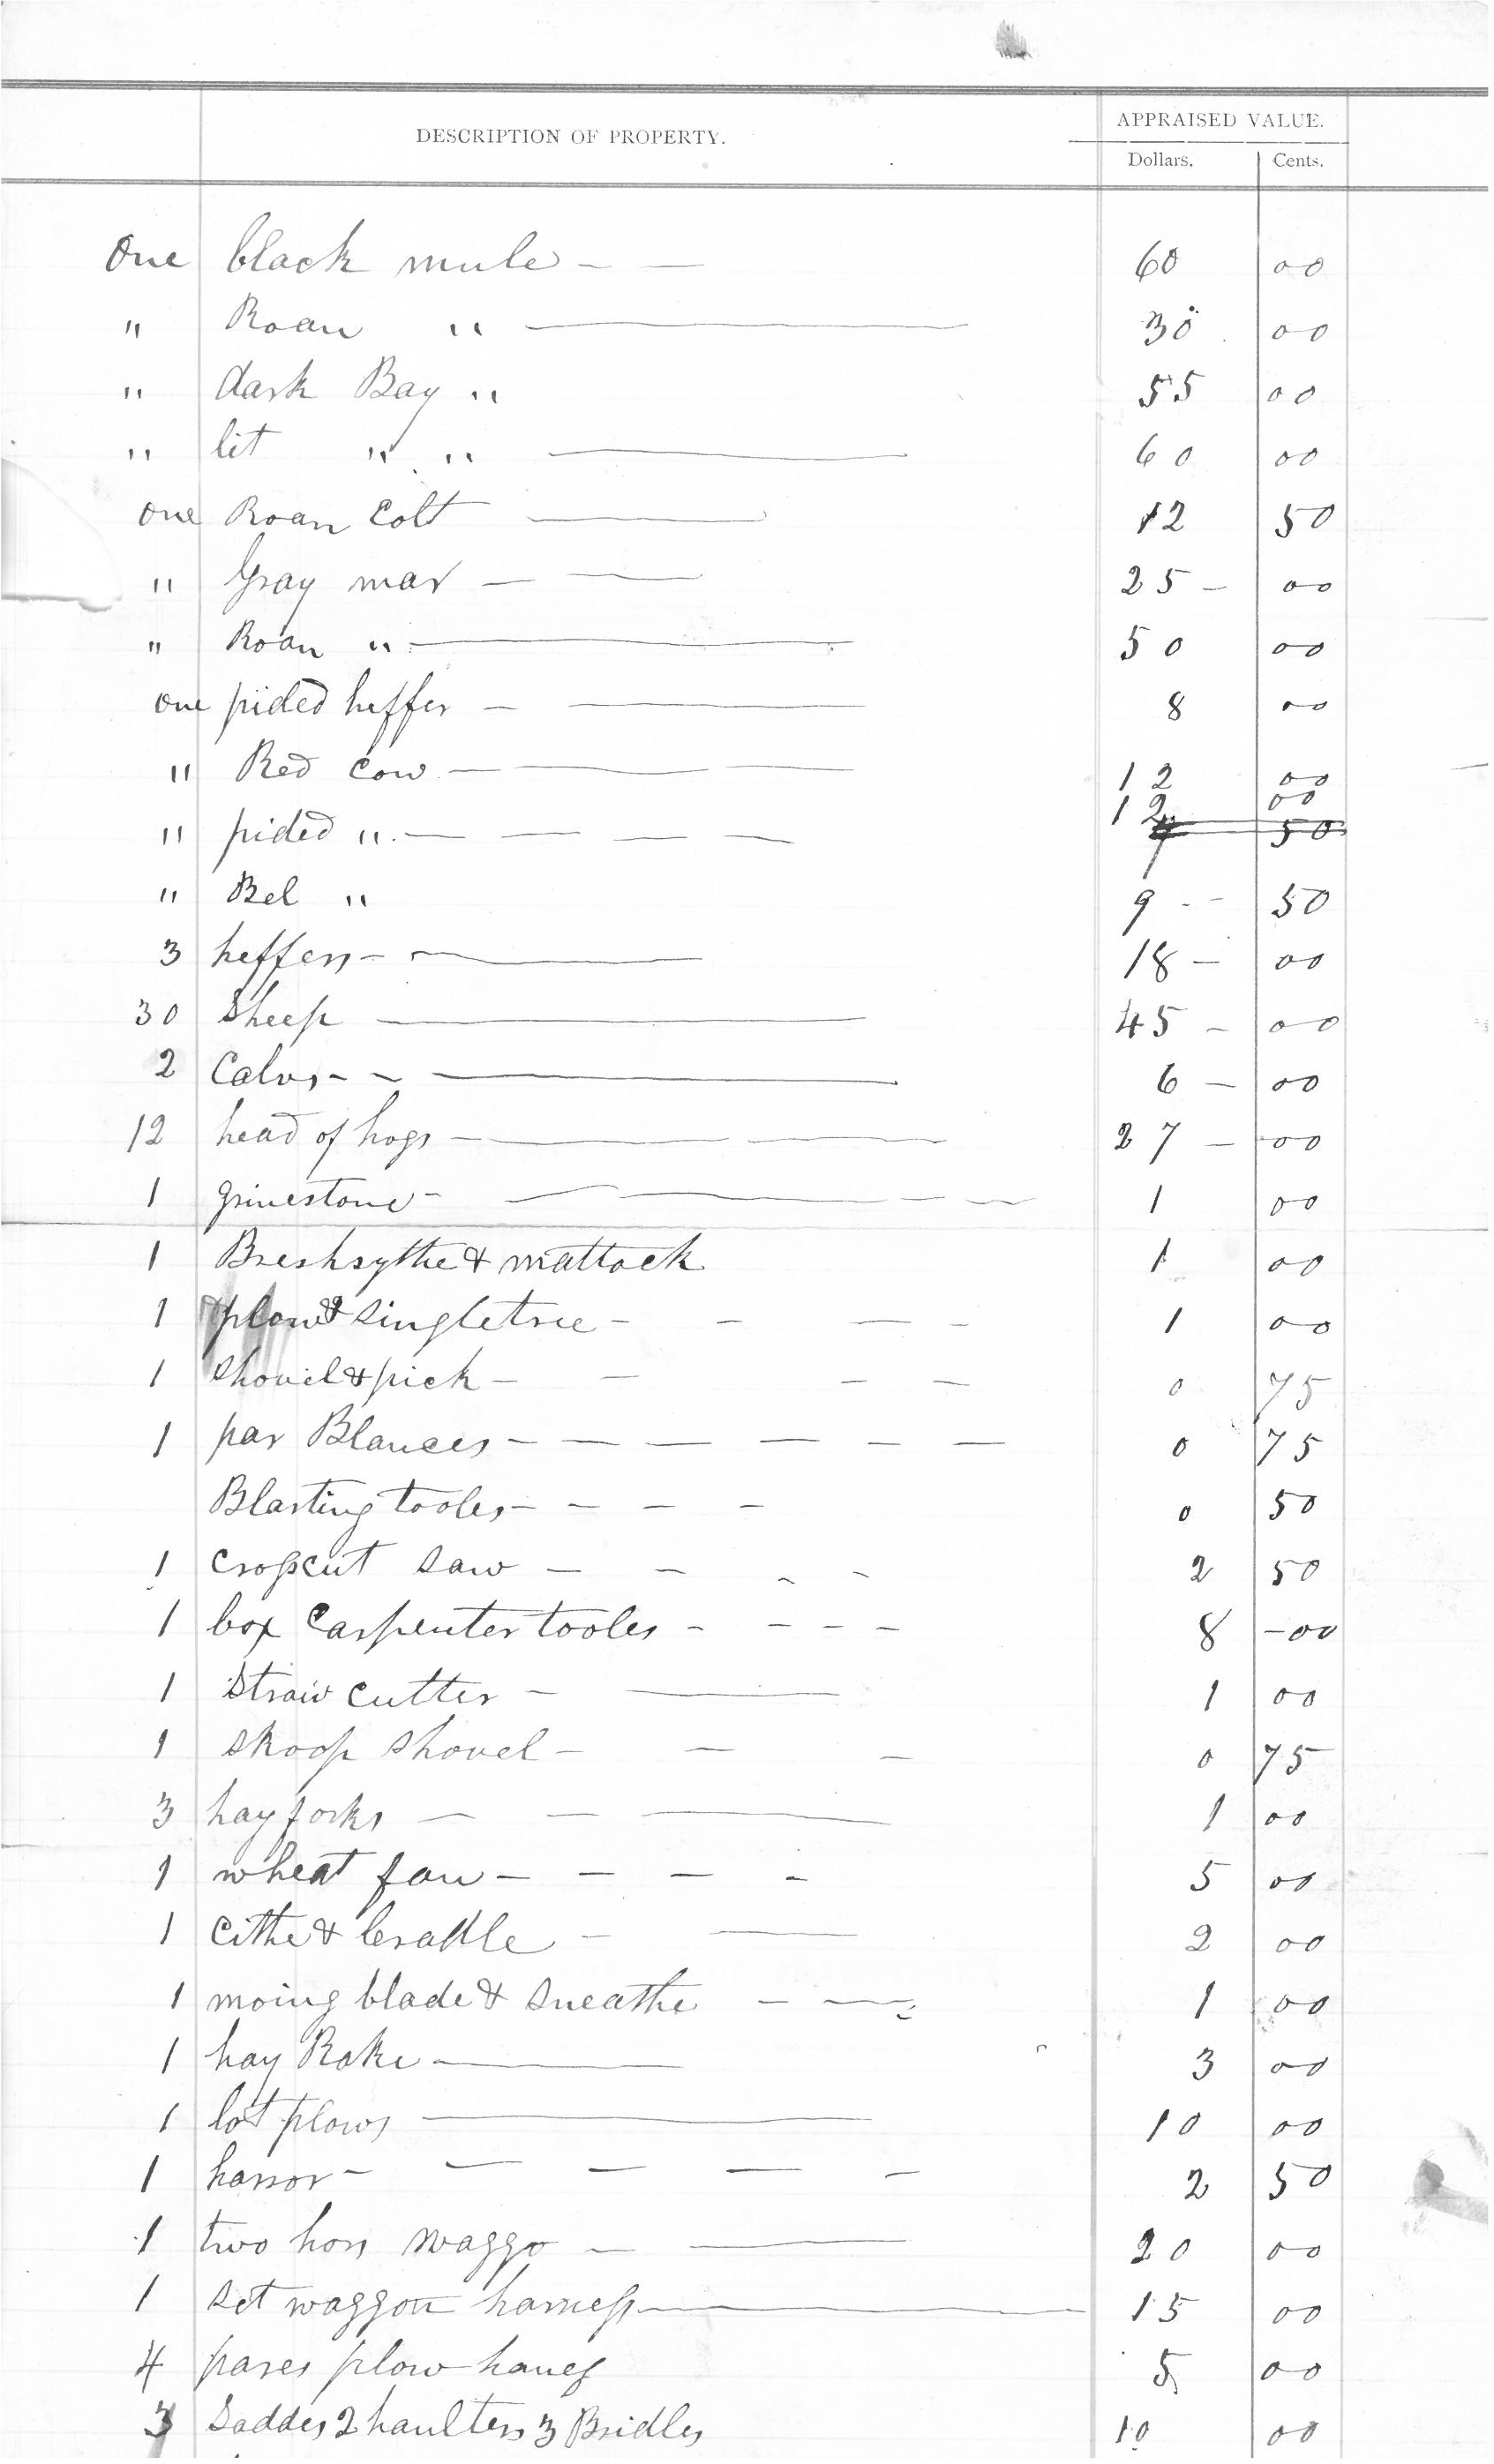 DESCRIPTION OF PROPERTY. APPRAISED VALUE.
Dollars. Cents.
One black mule - — 60 00
" Roan " — 30 00
" dark Bay " 55 00
" lit " " — 60 00
one Roan Colt — 12 50
" Gray mar — — 25 — 00
" Roan " — 50 00
one pided heffer — — 8 00
" Red Cow — — — 12 00
" pided " — — — — 12 00
7 50
" Bel " 9 - - 50
3 heffers - — 18 — 00
30 Sheep — 45 — 00
2 Calvs - - — 6 — 00
12 head of hogs — — 27 — 00
1 grinestone - — — — — 1 00
1 Breshsythe & mattock 1 00
1 plow & singletree - - — - 1 00
1 Shovel & pick - — — — 0 75
1 par Blances - — — — — — 0 75
Blasting tooles - - - - 0 50
1 Crosscut saw — - - - 2 50
1 box Carpenter tooles - - - - 8 - 00
1 Straw Cutter - — 1 00
1 Skoop Shovel - — — 0 75
3 hay forks — — — 1 00
1 wheat fan - - - - 5 00
1 Cithe & Cradle - — 2 00
1 moing blade & Sneathe — — 1 00
1 hay Rake — 3 00
1 lot plows — 10 00
1 harror - — — — — 2 50
1 two hors waggo — — 20 00
1 set waggon harness — 15 00
4 pares plow hanes 5 00
3 Saddes 2 haulters 3 Bridles 10 00